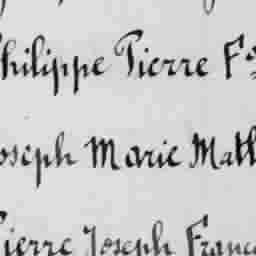 hilippe Pierre F
oseph Marie Math
ierre Joseph Franc